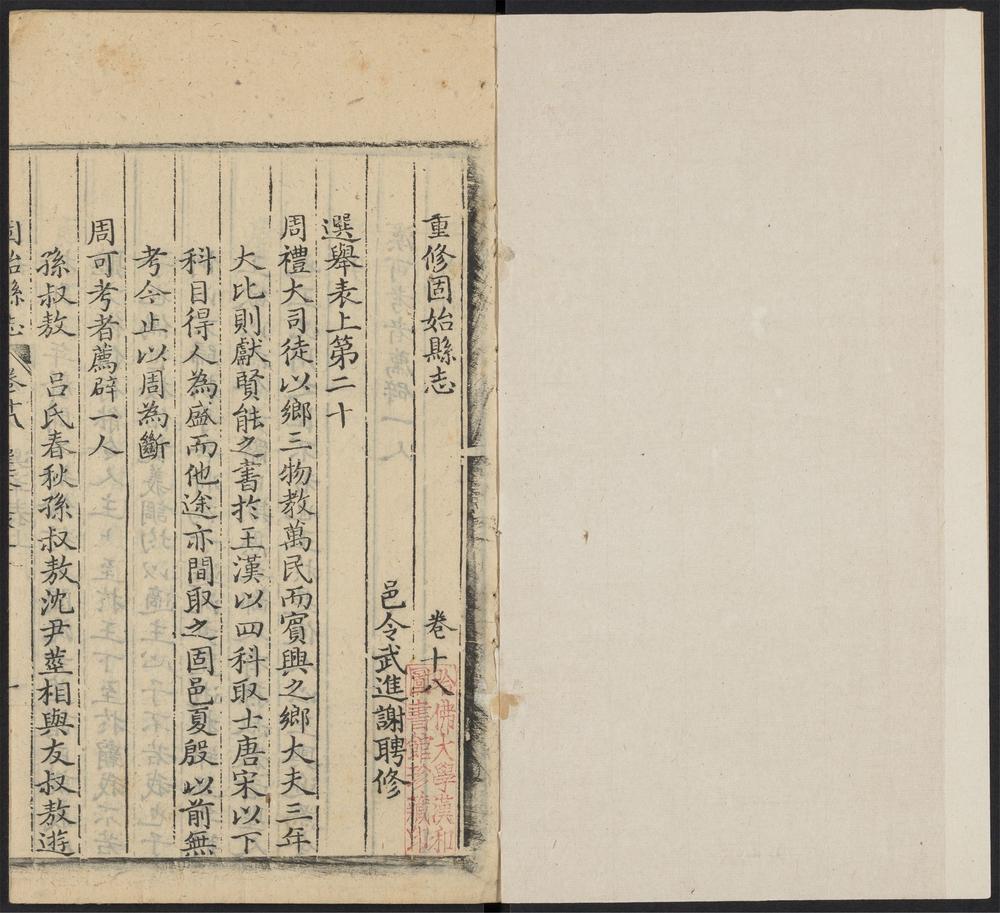 重修固始縣志 卷十八
邑令武進謝聘修
選舉表上第二十
周禮大司徒以鄉三物教萬民而賓興之鄉大夫三年
大比則獻賢能之書於王漢以四科取士唐宋以下
科目得人為盛而他途亦間取之固邑夏殷以前無
考今止以周為斷
周可考者薦辟一人
孫叔敖 呂氏春秋孫叔敖沈尹莖相與友叔敖遊
固始縣志 卷十八
哈佛大學漢和
圖書館珍藏印